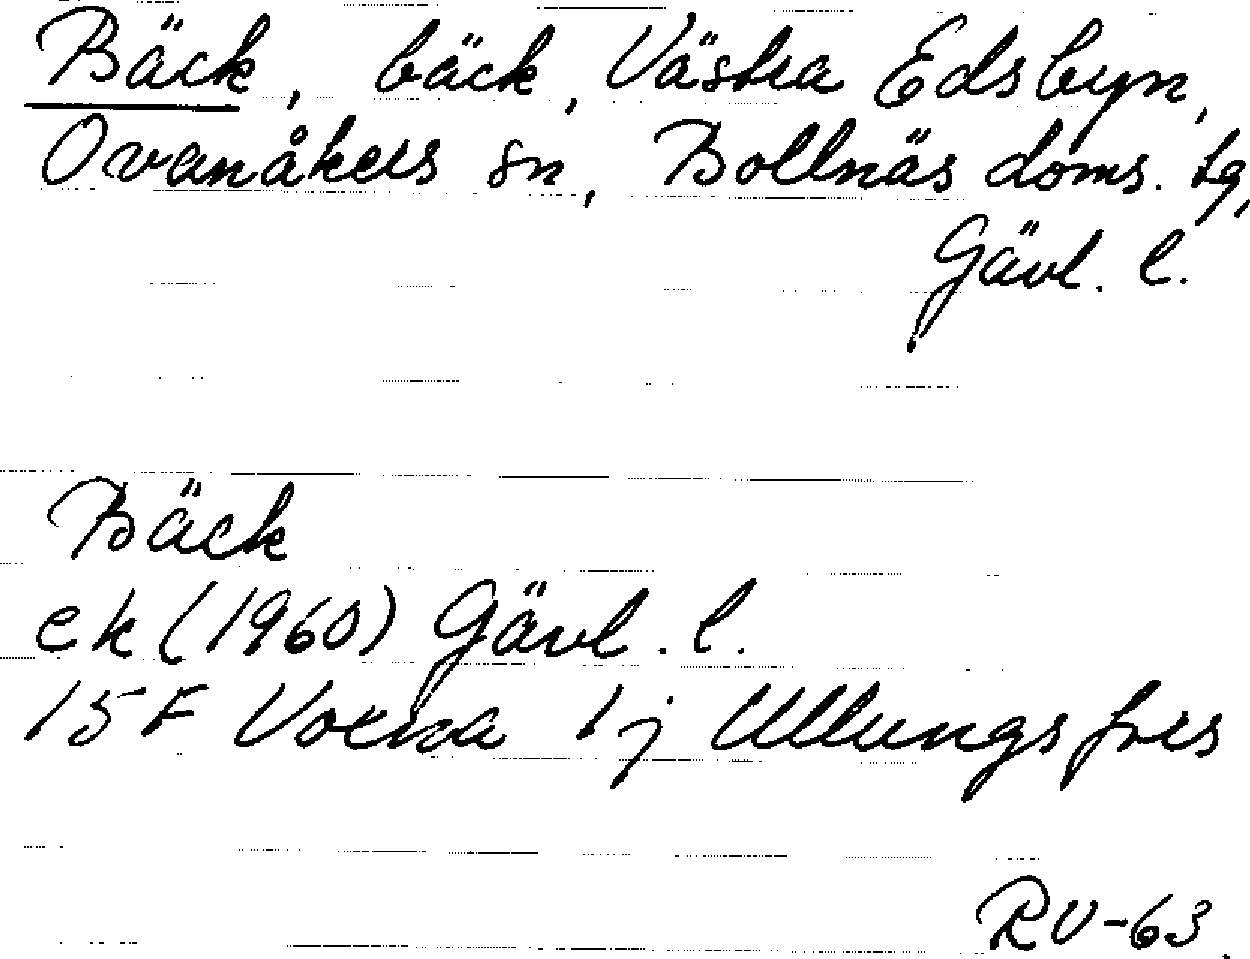 Bäck, bäck, Västra Edsbyn,
Ovanåkers sn, Bollnäs doms. tg,
Gävl. l.
Bäck
ek (1960) Gävl. l.
15 F Voxna 1 j Ullungsfors
RV-63